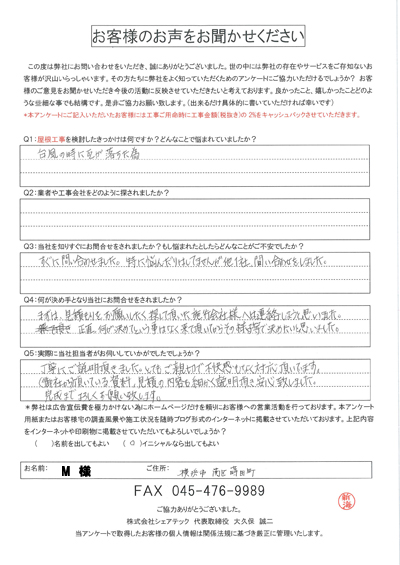 お客様のお声をお聞かせください
この度は弊社にお問い合わせをいただき、誠にありがとうございました。世の中には弊社の存在やサービスをご存知ないお
客様が沢山いらっしゃいます。その方たちに弊社をよく知っていただくためのアンケートにご協力いただけるでしょうか？ お客
様のご意見をお聞かせいただき今後の活動に反映させていただきたいと考えております。良かったこと、嬉しかったことどのよ
うな些細な事でも結構です。是非ご協力お願い致します。（出来るだけ具体的に書いていただければ幸いです）
*本アンケートにご記入いただいたお客様には工事ご用命時に工事金額(税抜き)の 2%をキャッシュバックさせていただきます。
Q1:屋根工事を検討したきっかけは何ですか？どんなことで悩まれていましたか？
台風の時に瓦が落ちた為
Q2:業者や工事会社をどのように探されましたか？
Q3:当社を知りすぐにお問合せをされましたか？もし悩まれたとしたらどんなことがご不安でしたか？
すぐに問い合わせました。特に悩んだりはしてませんが他1社、問い合わせをしました。
Q4:何が決め手となり当社にお問合せをされましたか？
まずは、見積もりをお願いしたく探して頂いた
正直、何が決めてという事はなく来て頂いてから
Q5:実際に当社担当者がお伺いしていかがでしたでしょうか？
丁寧にご説明頂きました。とてもご親切で不快感もなく対応頂いてます。
見積の内容も細かく説明頂き安心致しました。
お願い致します。
*弊社は広告宣伝費を極力かけない為にホームページだけを頼りにお客様への営業活動を行っております。本アンケート
用紙またはお客様宅の調査風景や施工状況を随時ブログ形式のインターネットに掲載させていただいております。上記内容
をインターネットや印刷物に掲載させていただいてもよろしいでしょうか？
（　）名前を出してもよい　（ ○ ）イニシャルなら出してもよい
お名前: M 様　ご住所: 横浜市 南区 蒔田町
FAX 045-476-9989
ご協力ありがとうございました。
株式会社シェアテック 代表取締役 大久保 誠二
当アンケートで取得したお客様の個人情報は関係法規に基づき厳正に管理いたします。
新海